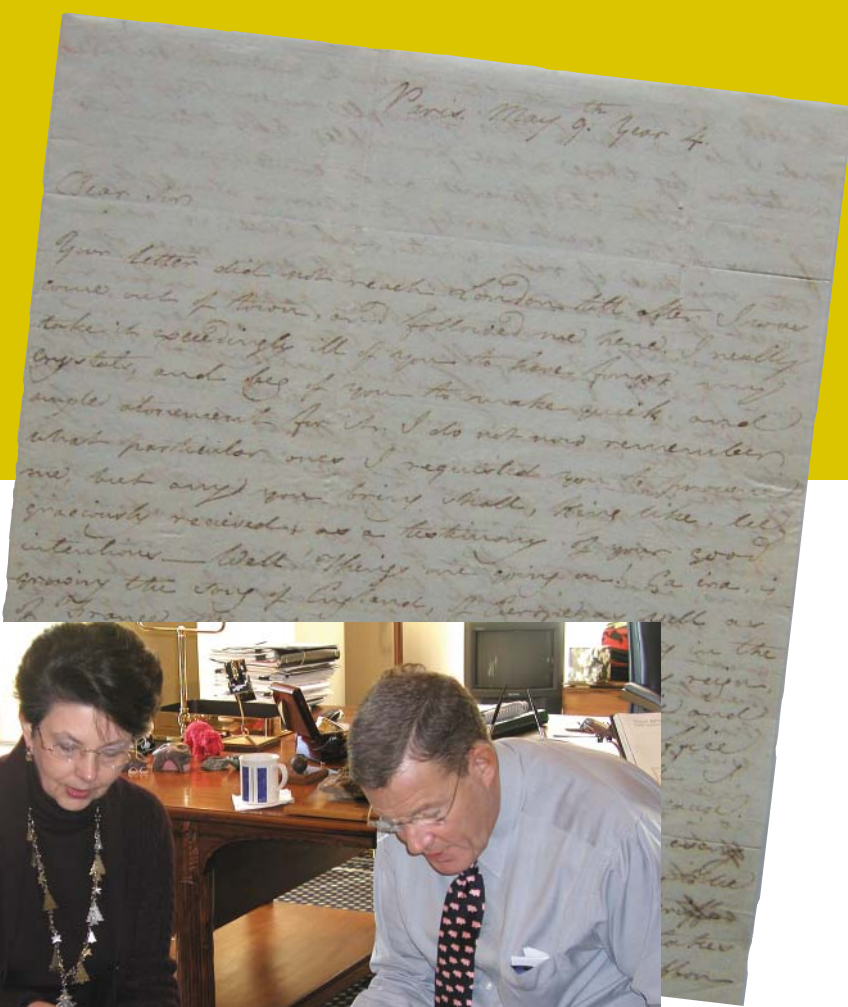 Paris. May 9.th Year 4.
Dear Sir
Your letter did not reach London till after I was
come out of town, and followed me here. I really
take it exceedingly ill of you to have forgot my
crystals, and beg of you to make quick and
ample atonement for it. I do not now remember
what particular ones I requested you to procure
me, but any you bring shall, King like, be
graciously recieved as a testimony of your good
intentions — Well! Things are going on. Ca ira, is
growing the song of England, as well as
of France.
in the
reign
and
office
I
cause.
the